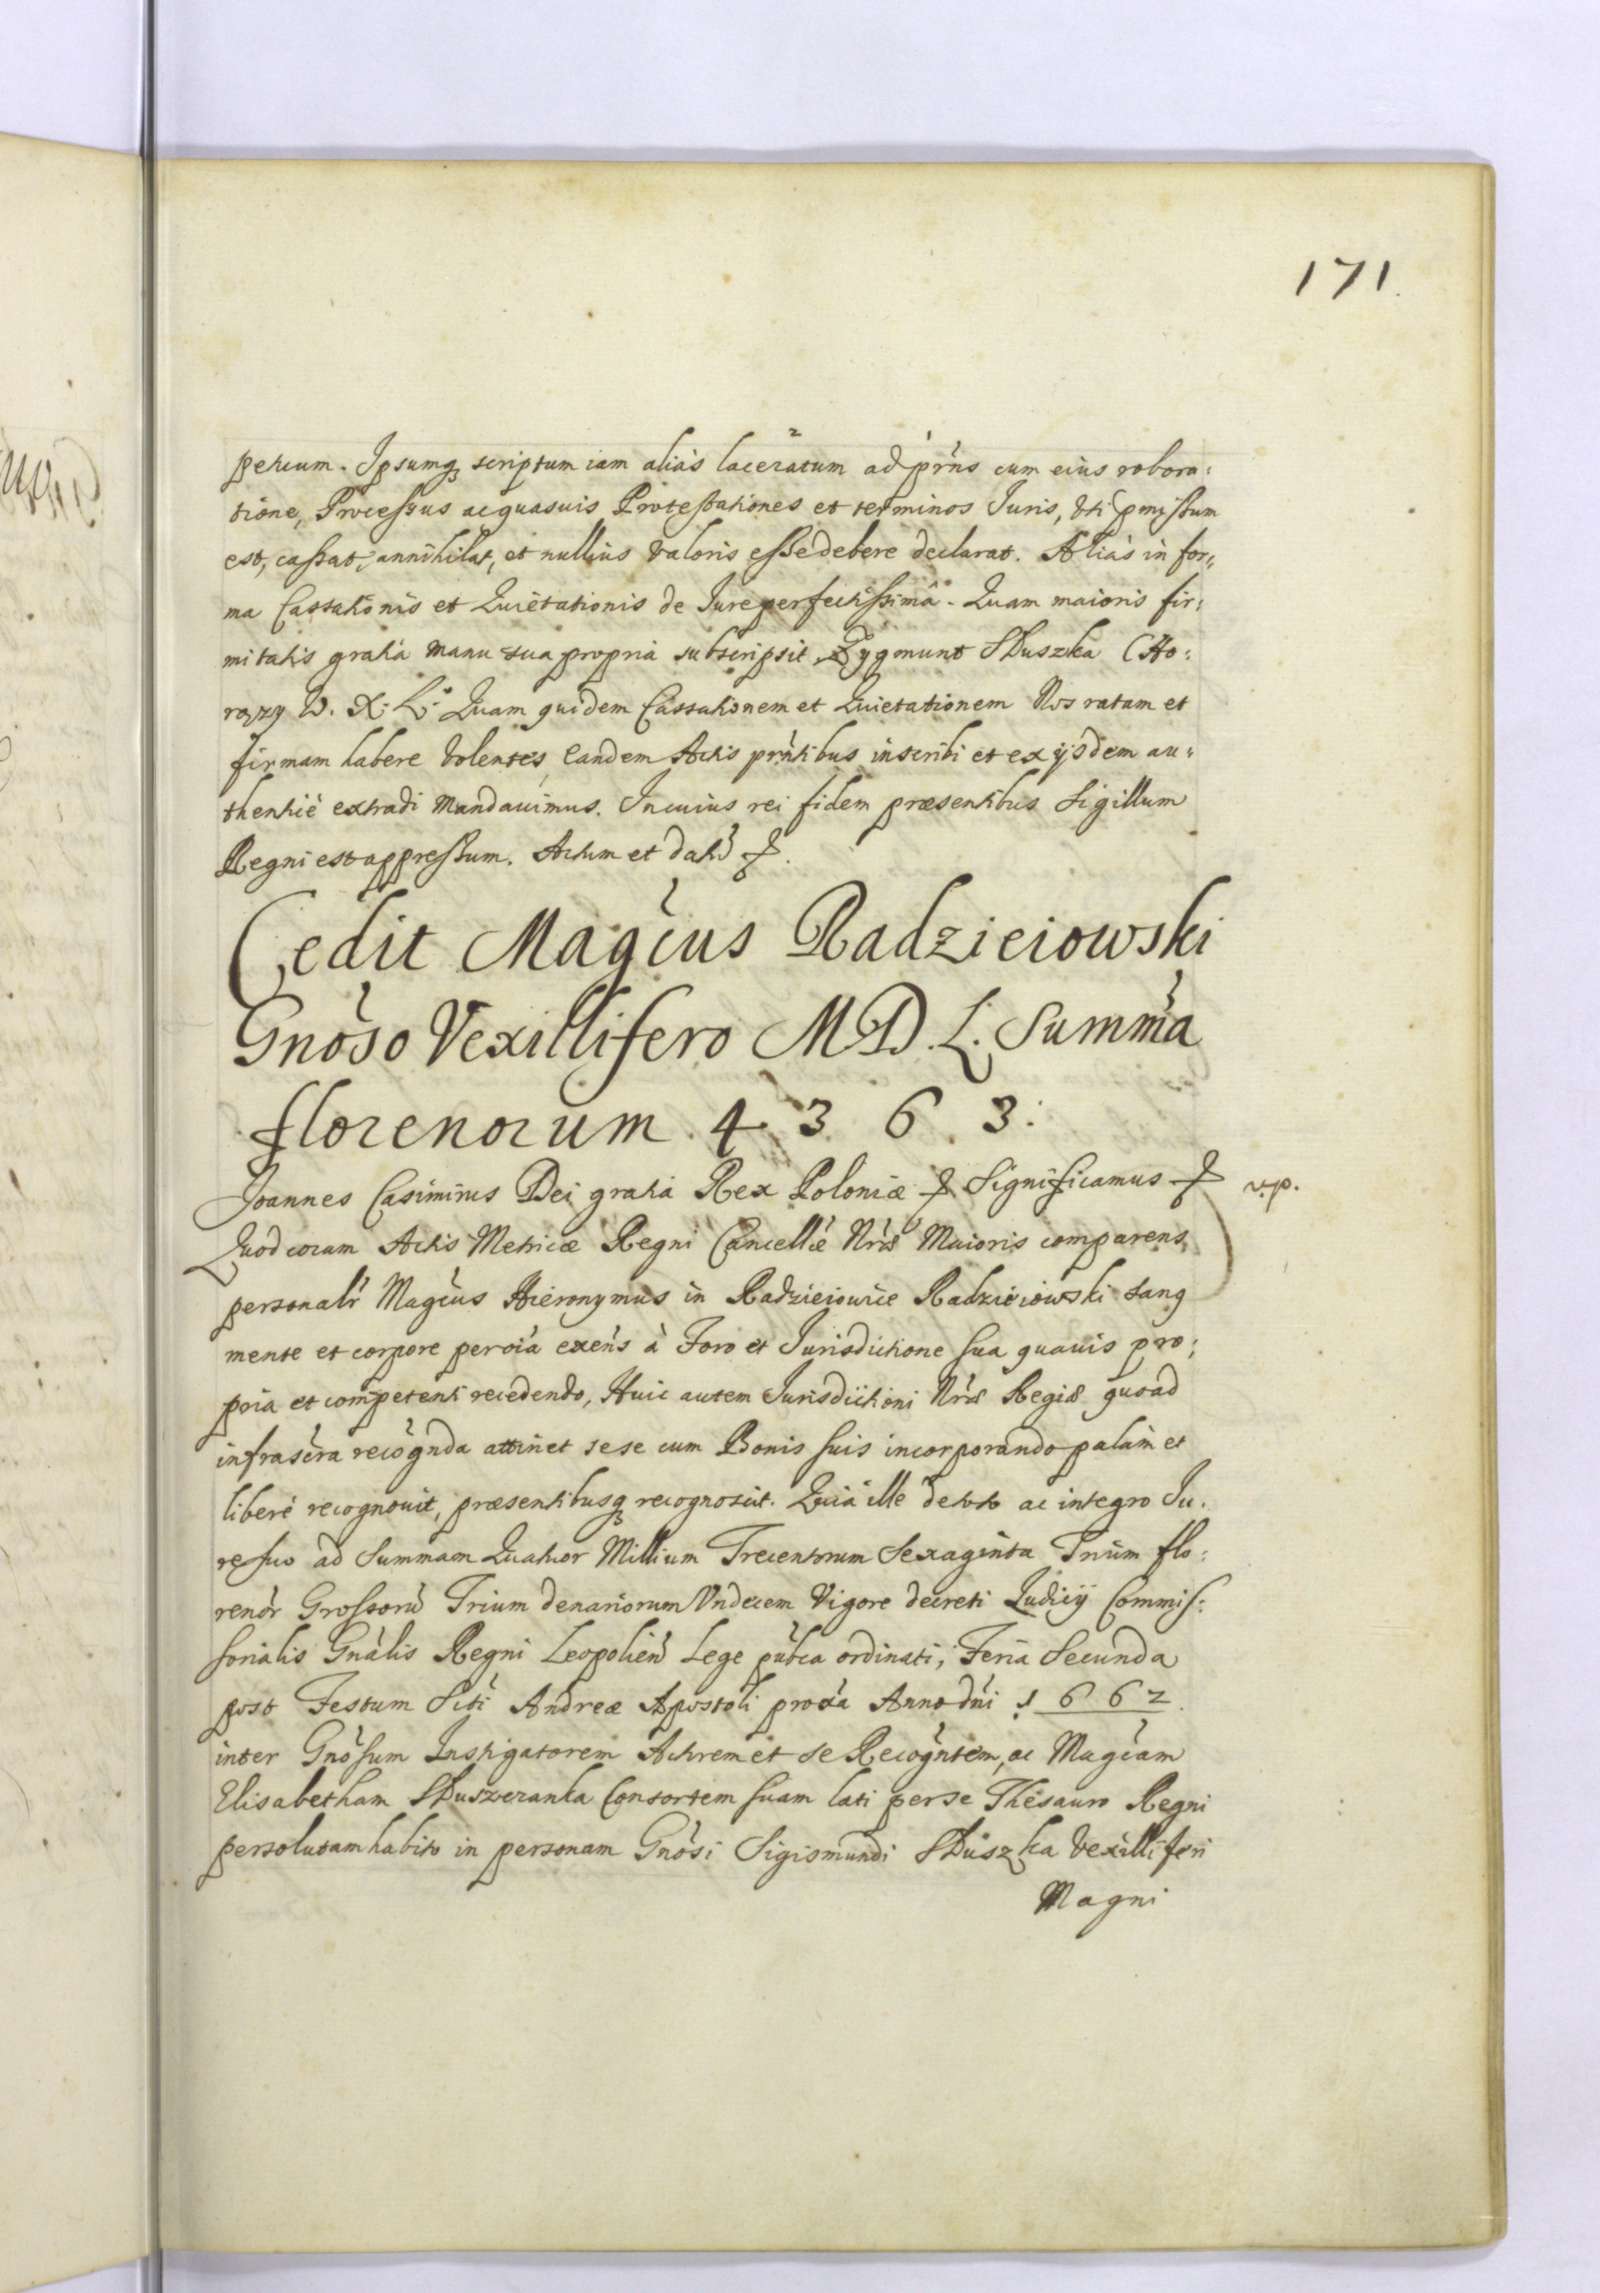 171.
petuum. Ipsumq₃ scriptum iam aliàs laceratum ad prńs cum eius robora:
tione, Processus ac quasuis Protestationes et terminos Iuris, Vti pmissum
est, cassat, annihilat, et nullius valoris esse debere declarat. Aliàs in for,,
ma Cassationis et Quietationis de Iure perfectissimâ. Quam maioris fir:
mitatis gratiâ manu sua propriâ subscripsit Zygmunt Słuszka Cho:
rązy W. X. L. Quam quidem Cassationem et Quietationem Nos ratam et
firmam habere Volentes, Eandem Actis prńtibus inscribi et ex ijsdem au:
thenticè extradi mandauimus. In cuius rei fidem præsentibus Sigillum
Regni est appressum. Actum et datũ &.
Cedit Magćus Radzieiowski
Gnõso Vexillifero M D. L. Summã
florenorum 4 3 6 3.
Joannes Casimirus Dei gratiâ Rex Poloniæ & Significamus & v.p.
Quod coram Actis Metricæ Regni Cancellæ Nræ Maioris comparens
personalr Magćus Hieronymus in Radzieiowice Radzieiowski sang
mente et corpore per oiâ exeńs à Foro et Iurisdictione sua quauis pro:
pria et competenti recedendo, Huic autem Iurisdictioni Nræ Regiæ quoad
infrascra recognda attinet sese cum Bonis suis incorporando palàm et
liberè recognouit, præsentibusq₃ recognoscit. Quia ille de toto ac integro Iu.
re suo ad Summam Quatuor Millium Trecentorum Sexaginta Trium flo:
renor Grossorũ Trium denariorum Vndecem Vigore decreti Iudicij Commis:
sorialis Gnalis Regni Leopolień Lege pubca ordinati, Feria Secunda
post Festum Scti Andreæ Apostoli proxa Anno dni 1662.
inter Gnosum Instigatorem Actorem et se Recogntem, ac Magćam
Elisabetham Słuszczanka Consortem suam lati per se Thesauro Regni
persolutam habito in personam Gnosi Sigismundi Słuszka Vexilliferi
Magni